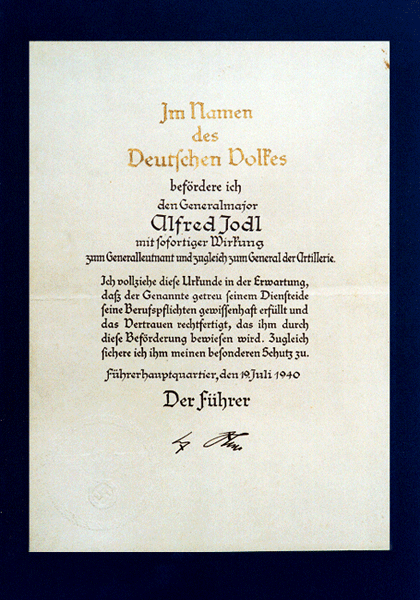 Im Namen
des
Deutschen Volkes
befördere ich
den Generalmajor
Alfred Jodl
mit sofortiger Wirkung
zum Generalleutnant und zugleich zum General der Artillerie.
Ich vollziehe diese Urkunde in der Erwartung,
daß der Genannte getreu seinem Diensteide
seine Berufspflichten gewissenhaft erfüllt und
das Vertrauen rechtfertigt, das ihm durch
diese Beförderung bewiesen wird. Zugleich
sichere ich ihm meinen besonderen Schutz zu.
Führerhauptquartier, den 19. Juli 1940
Der Führer